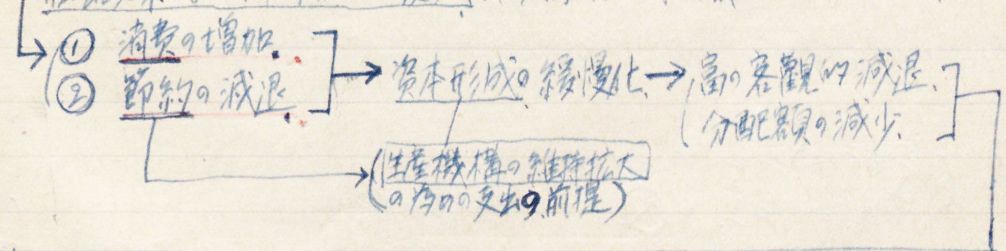 ① 消費の増加
② 節約の減退
→ 資本形成の緩慢化 → 富の客観的減退、
分配額の減少、
(生産機構の維持拡大
の為めの支出の前提)